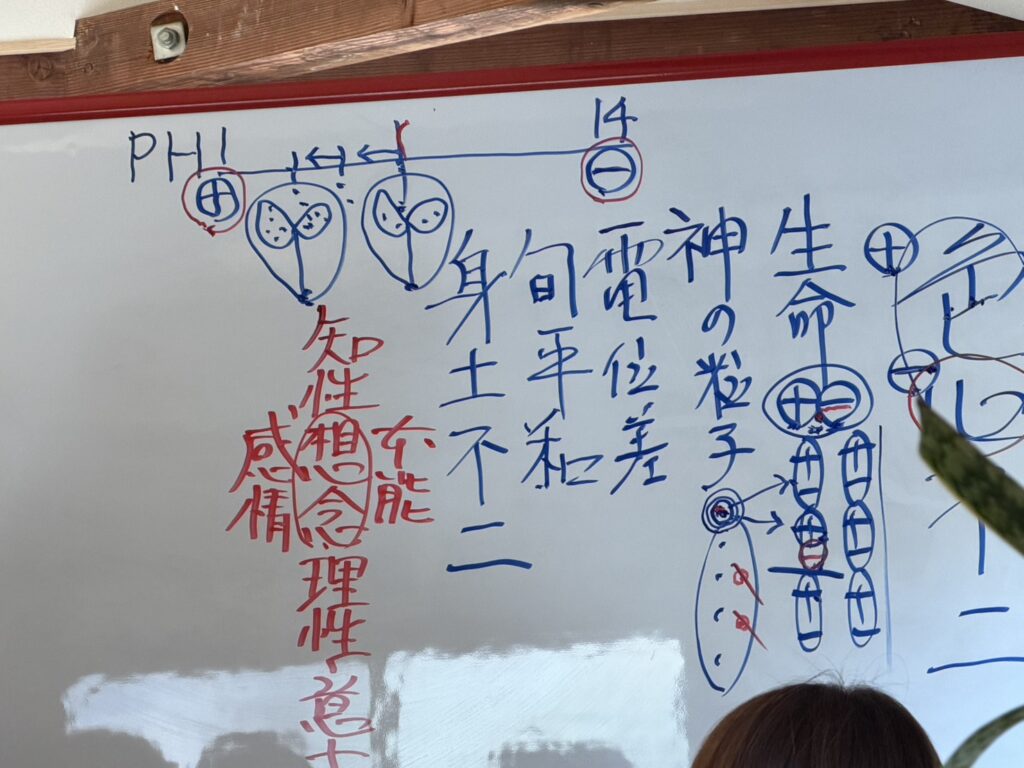 PH 1
14
⊕
⊖
生命
⊕⊖
神の粒子
電位差
旬平和
身土不二
知性
本能
想念
感情
理性
不二